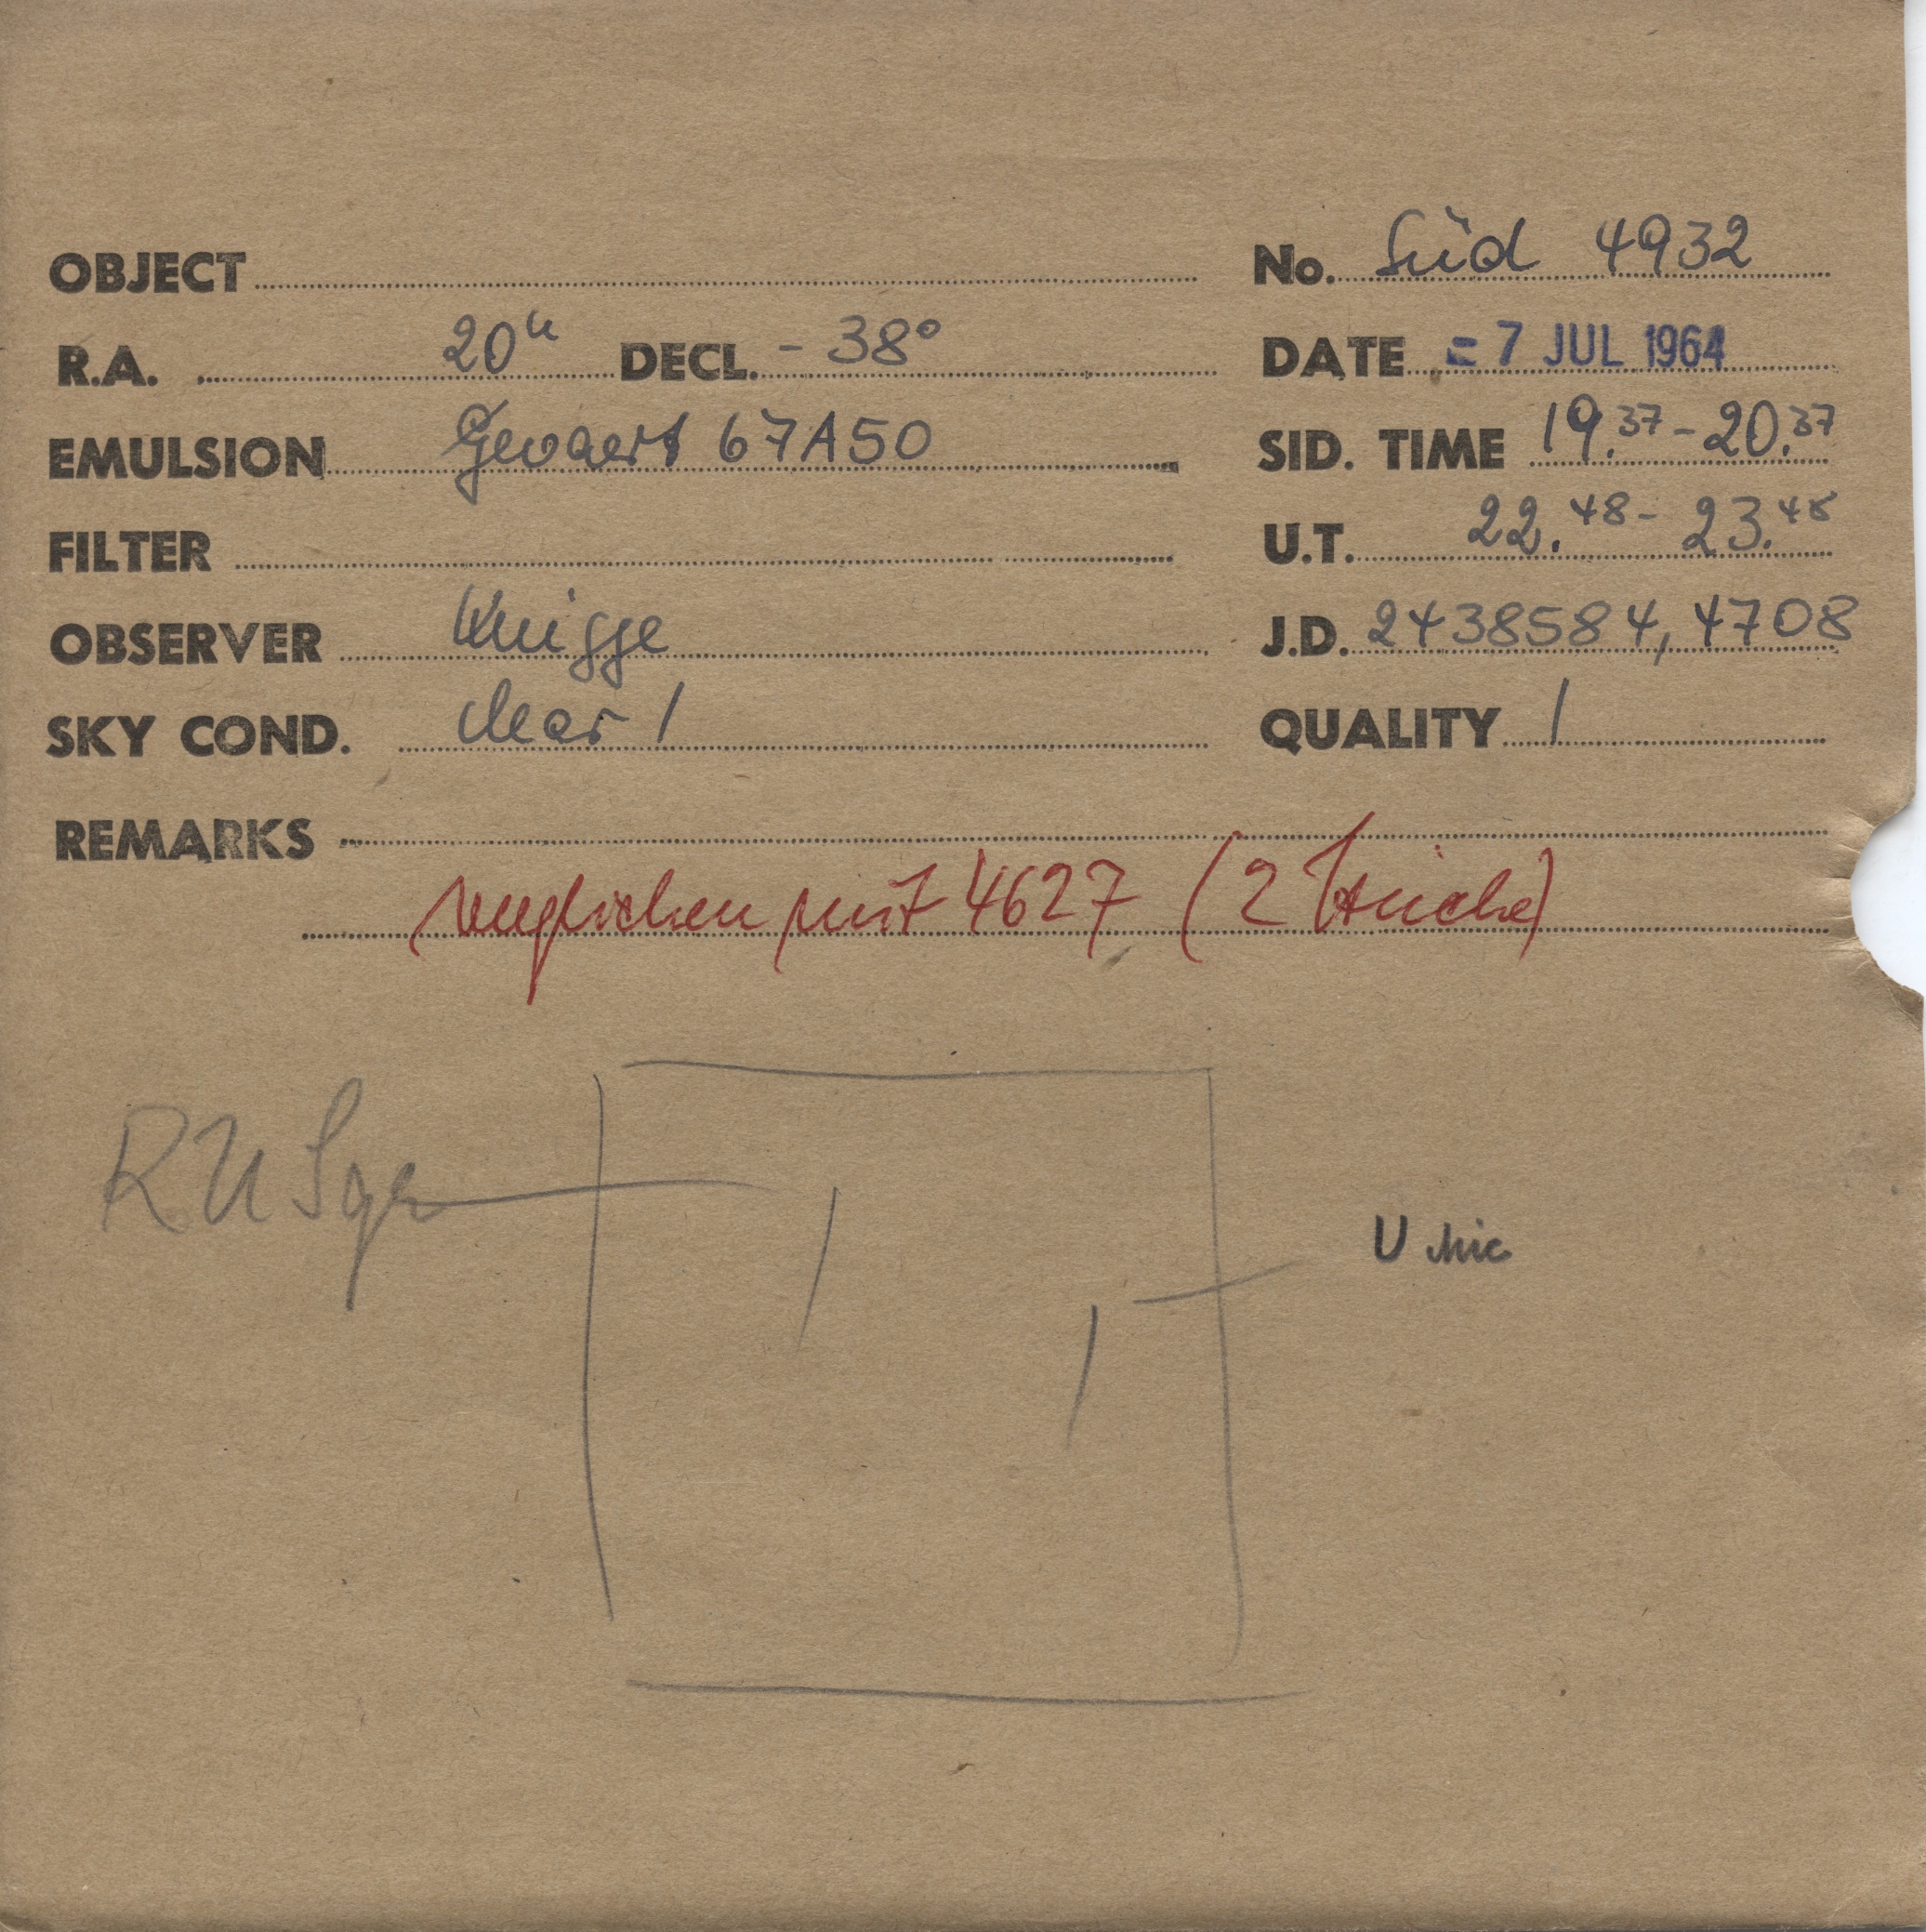 OBJECT No. Süd 4932
R.A. 20h DECL. - 38° DATE = 7 JUL 1964
EMULSION Gevaert 67A50 SID. TIME 19.37 - 20.37
FILTER U.T. 22.48 - 23.48
OBSERVER Knigge J.D. 2438584,4708
SKY COND. clear 1 QUALITY 1
REMARKS
verglichen mit 4627 (2 Striche)
RU Sgr
U Mic